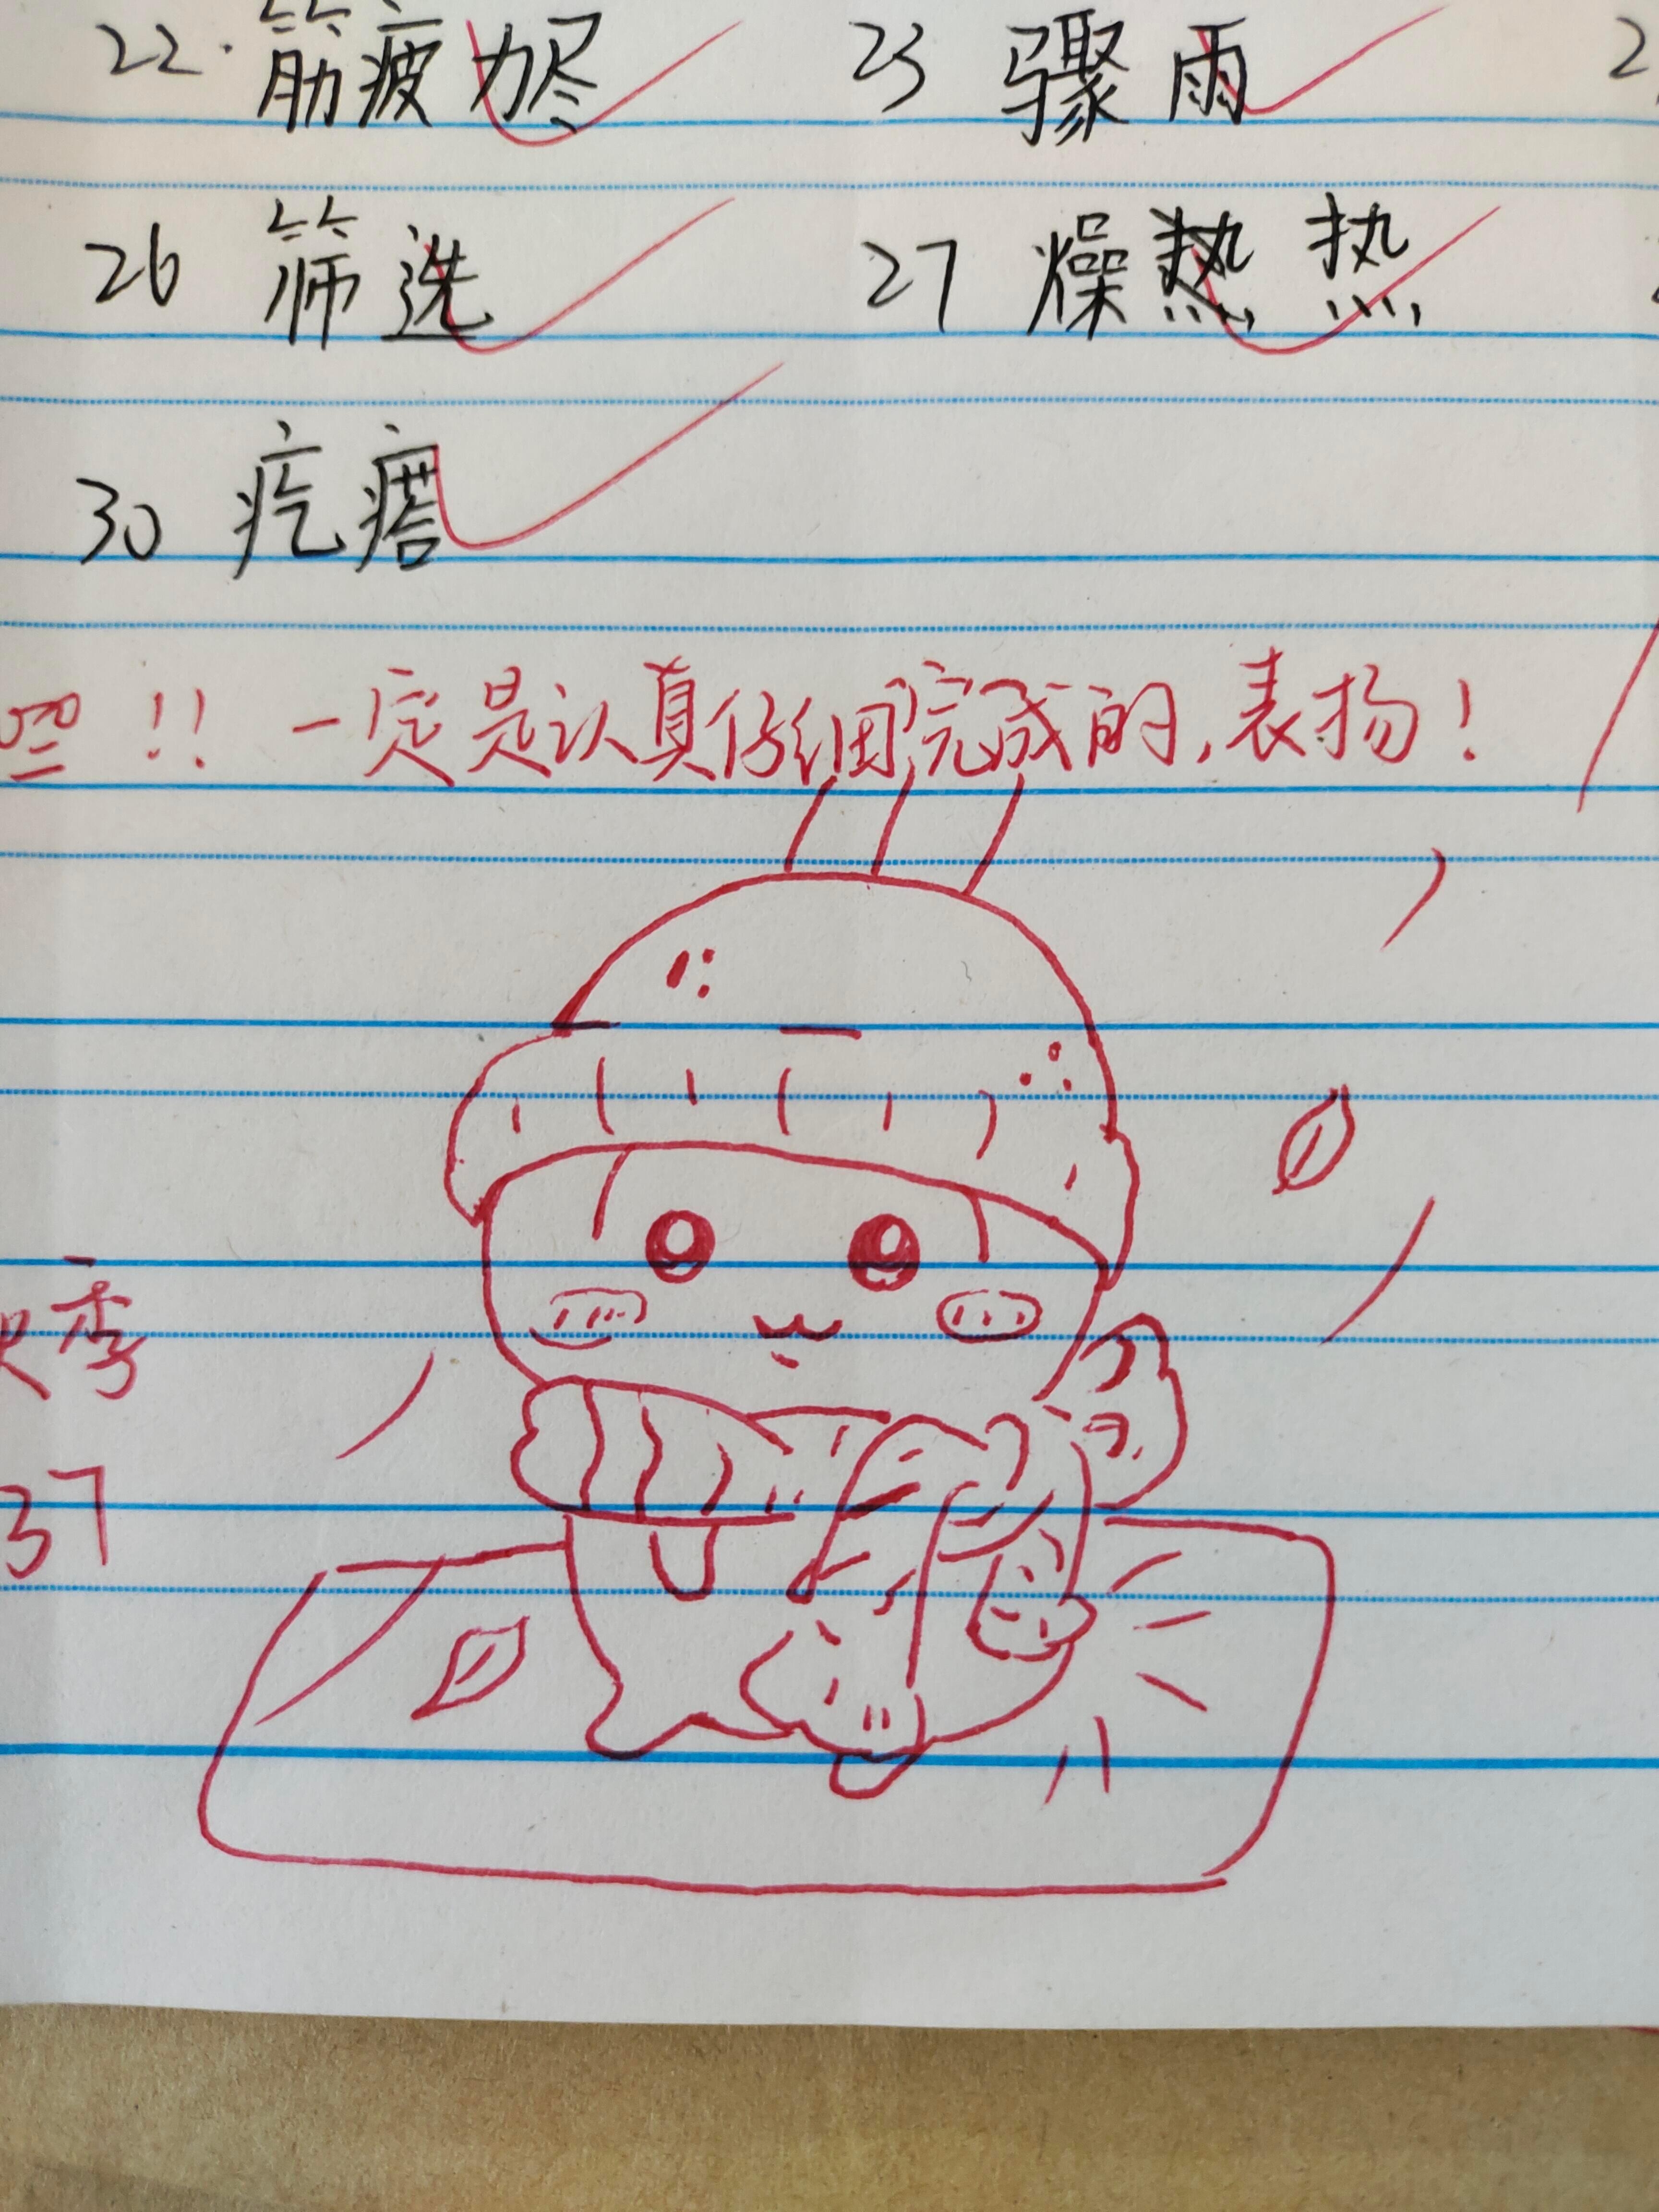 22. 筋疲力尽 23 骤雨 2
26 筛选 27 燥热 热
30 疙瘩
!! 一定是认真仔细完成的,表扬!
季
37